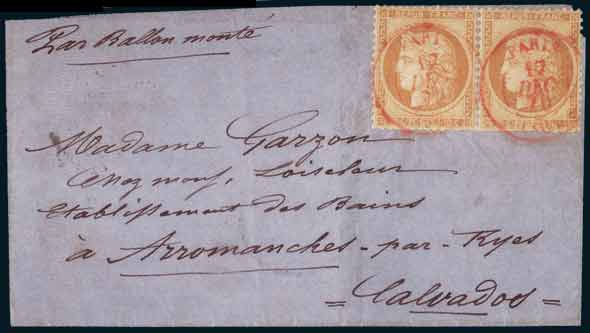 Par Ballon monté
REPUB FRANC
REPUB FRANC
PARIS
17
PARIS
17
DEC
Madame Garzon
chez mons. Loiseleur
Etablissement des Bains
à Arromanches - par - Ryes
= Calvados =